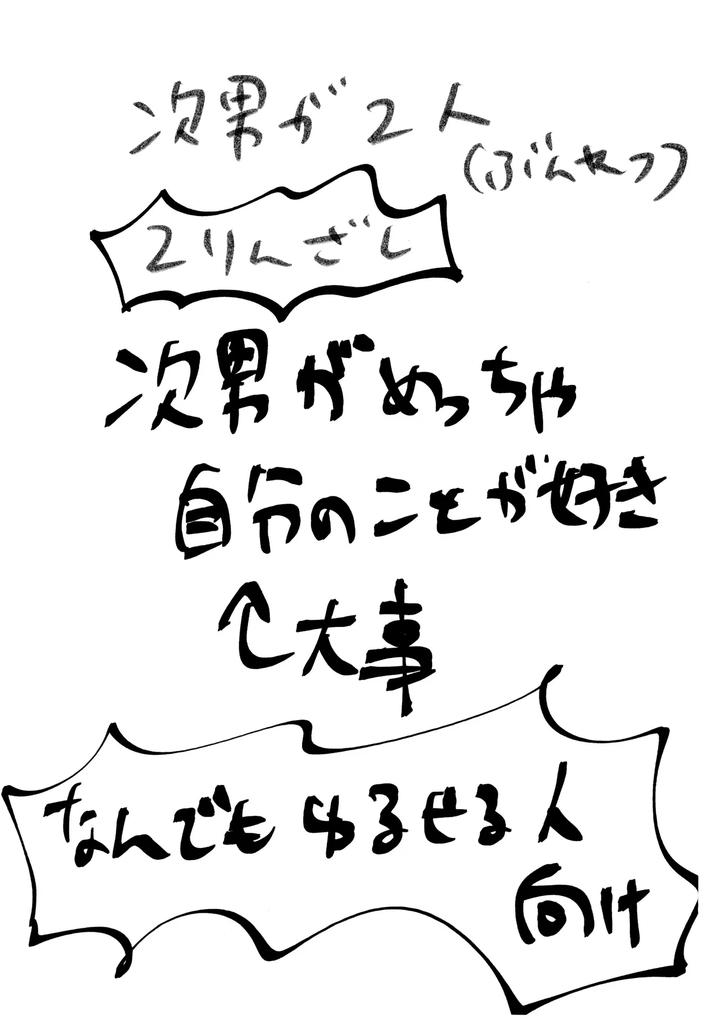 次男が2人
(ぶんれつ)
2りんざし
次男がめっちゃ
自分のことが好き
↑大事
なんでもゆるせる人
向け